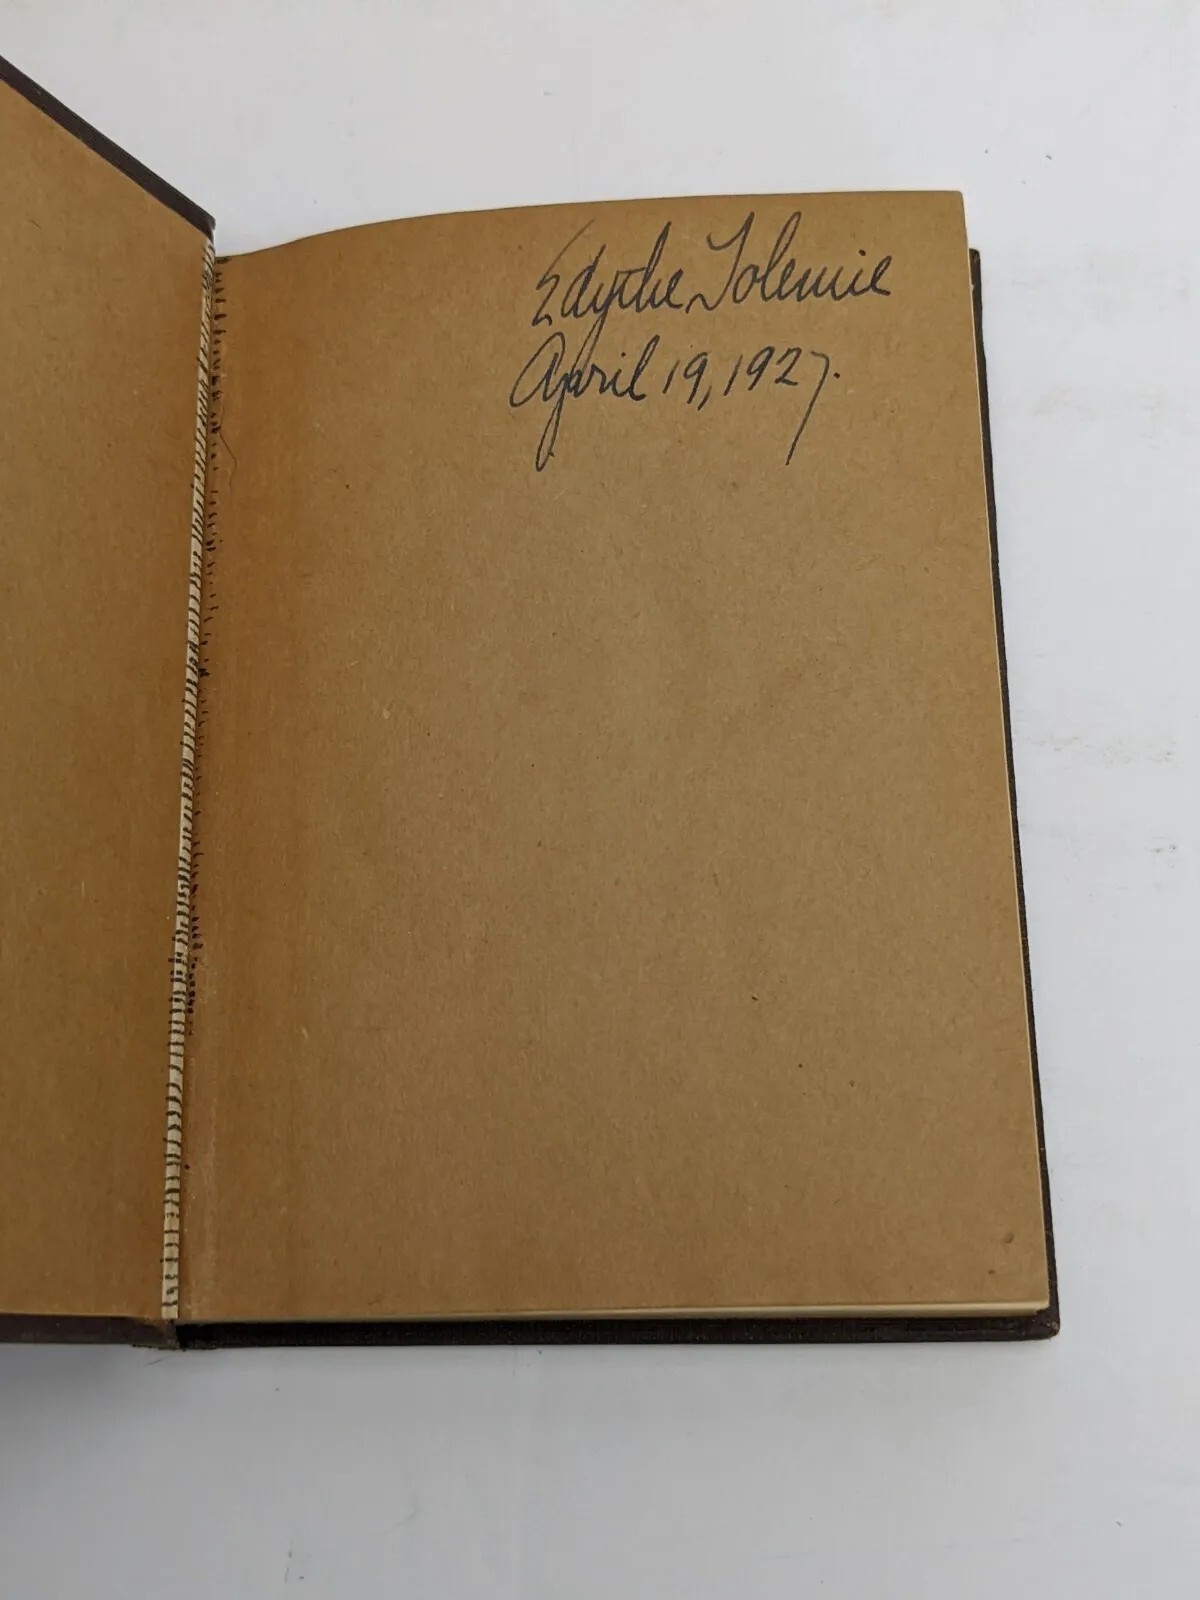 Edythe Tolemie
April 19, 1927.